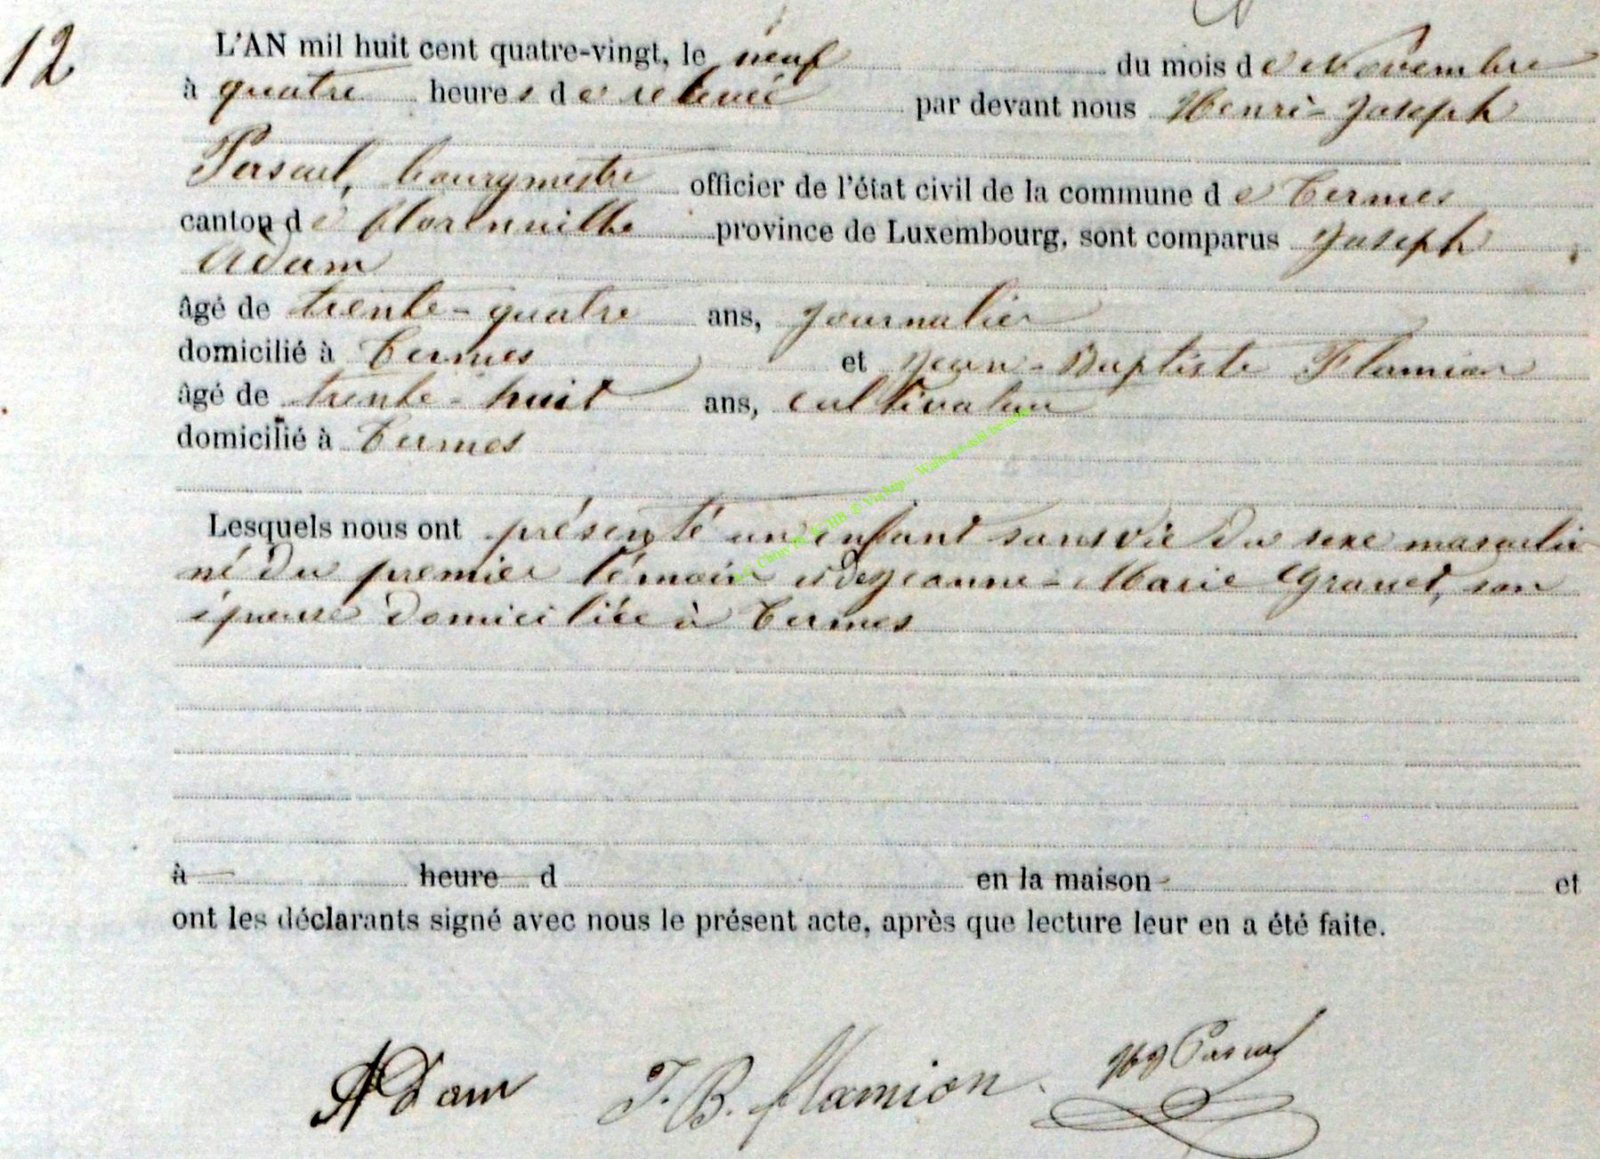 12
L'AN mil huit cent quatre-vingt, le neuf du mois de Novembre
à quatre heures de relevée par devant nous Henri-Joseph
Pascal, bourgmestre officier de l'état civil de la commune de Termes
canton de florenville province de Luxembourg, sont comparus Joseph
Adam
âgé de trente-quatre ans, journalier
domicilié à Termes et Jean-Baptiste Flamion
âgé de trente-huit ans, cultivateur
domicilié à Termes
Lesquels nous ont présenté un enfant sans vie du sexe masculin
né du premier témoin et de Jeanne-Marie Granet, son
épouse domiciliée à Termes
à heure d en la maison et
ont les déclarants signé avec nous le présent acte, après que lecture leur en a été faite.
Adam J. B. flamion HJ Pascal